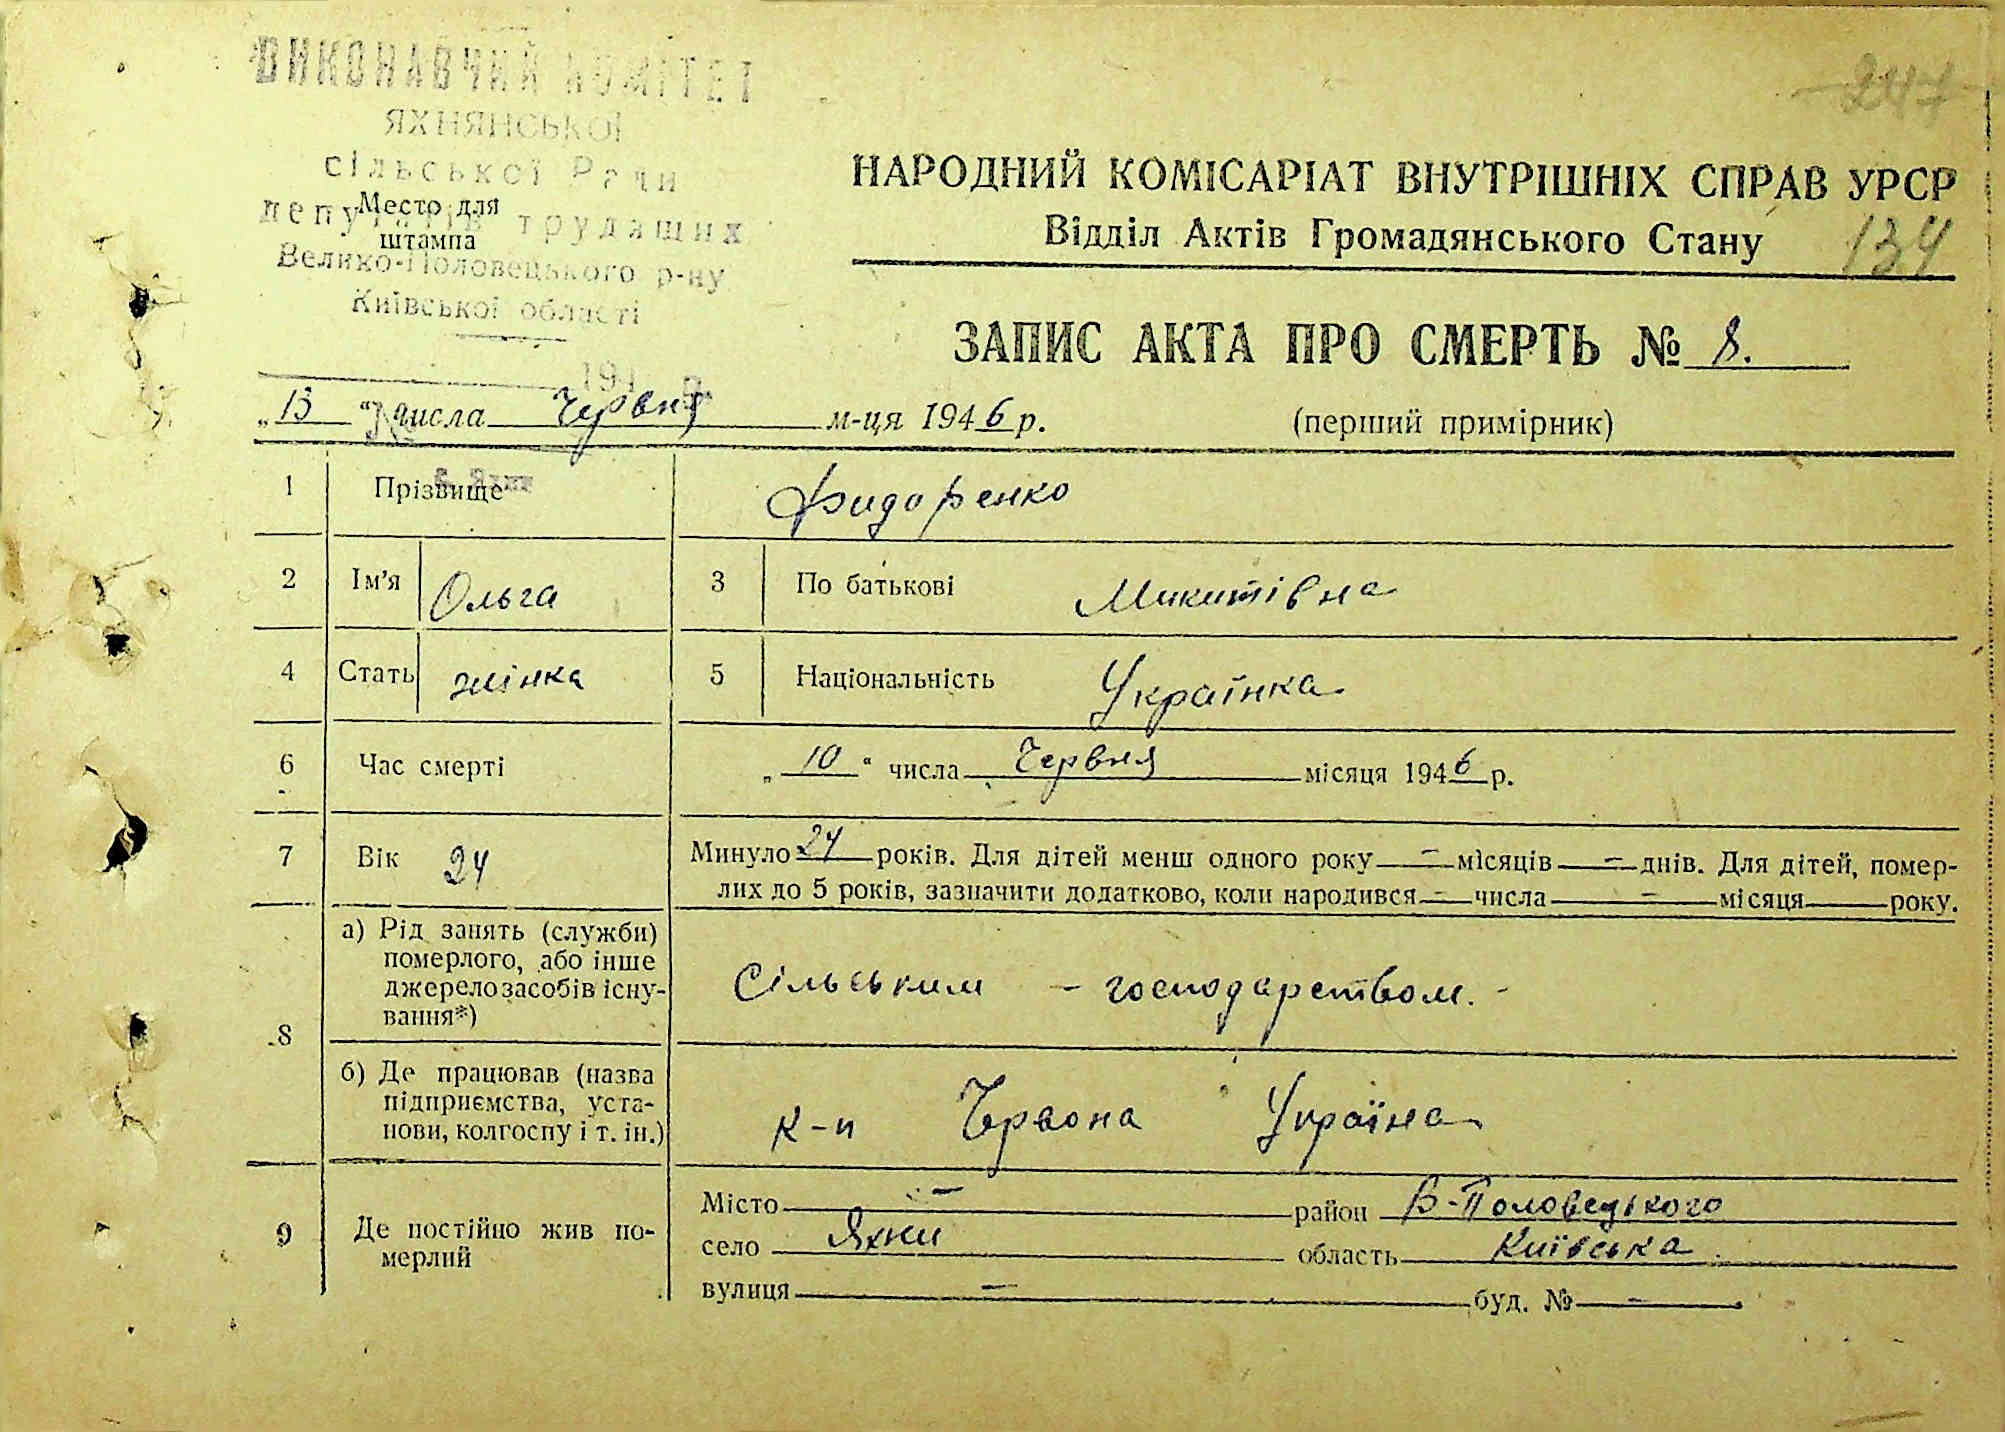 ВИКОНАВЧИЙ КОМІТЕТ
ЯХНЯНСЬКОЇ
сільської Ради
депутатів трудящих
Велико-Половецького р-ну
Київської області
Место для
штампа
247
НАРОДНИЙ КОМІСАРІАТ ВНУТРІШНІХ СПРАВ УРСР
Відділ Актів Громадянського Стану
134
ЗАПИС АКТА ПРО СМЕРТЬ № 8.
194 р.
№
„13“ числа Червня м-ця 1946 р.
(перший примірник)
с. Яхни
1 Прізвище Фидоренко
2 Ім'я Ольга 3 По батькові Микитівна
4 Стать жінка 5 Національність Українка
6 Час смерті „10“ числа Червня місяця 1946 р.
7 Вік 24 Минуло 24 років. Для дітей менш одного року — місяців — днів. Для дітей, помер-
лих до 5 років, зазначити додатково, коли народився — числа — місяця року.
8 а) Рід занять (служби)
померлого, або інше
джерело засобів існу-
вання*)
Сільським - господарством. -
б) Де працював (назва
підприємства, уста-
нови, колгоспу і т. ін.)
к-п Червона Україна
9 Де постійно жив по-
мерлий
Місто — район В-Половецького
село Яхни область Київська
вулиця — буд. № —